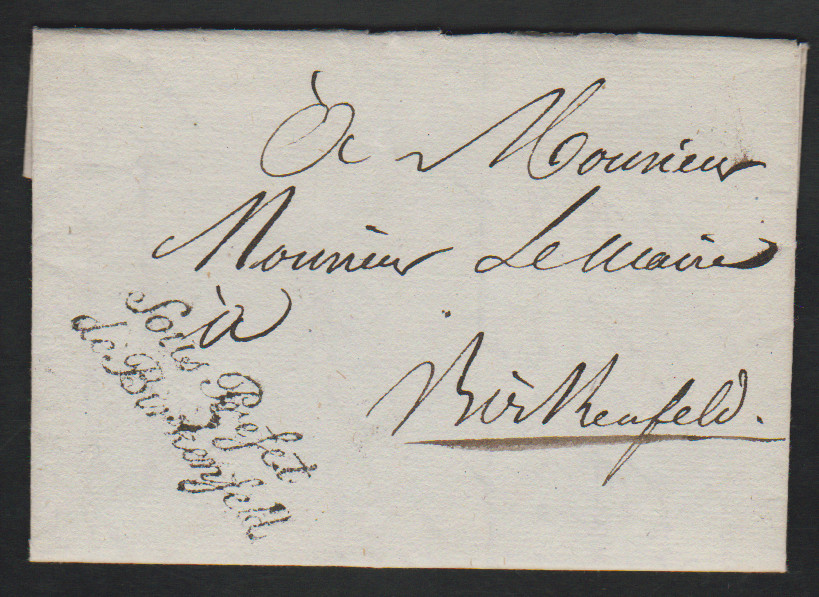 À Monsieur
Monsieur Le Maire
à
Birkenfeld.
Sous Préfet
de Birkenfeld